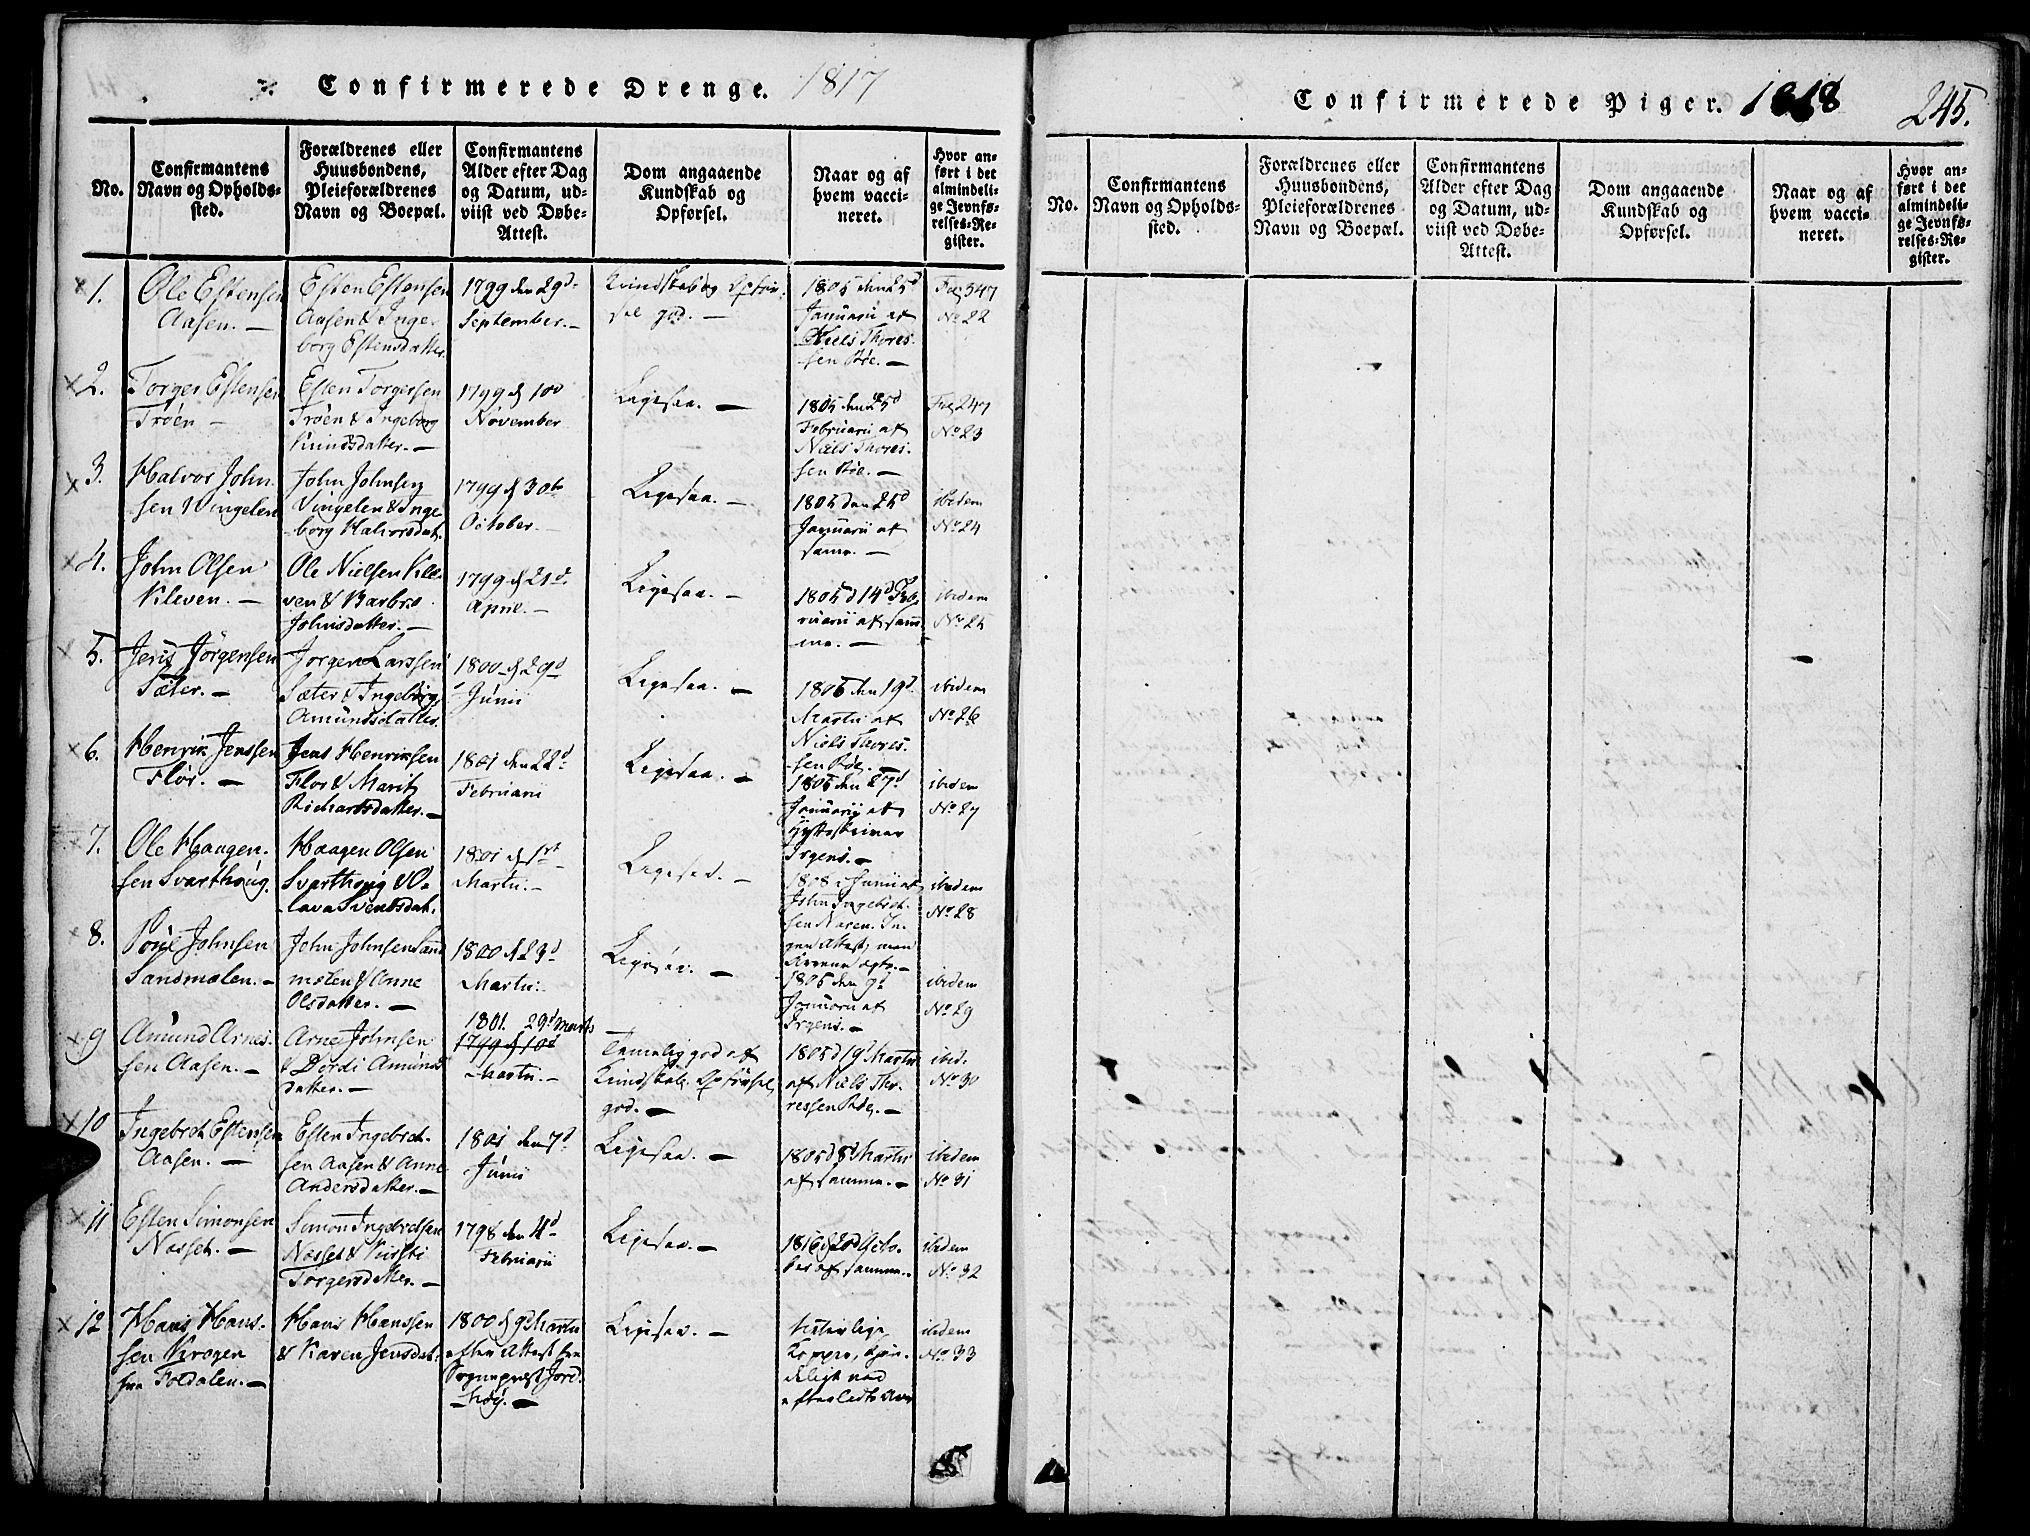 Confirmerede Drenge. 1817
No.
Confirmantens Navn og Opholds-sted.
Forældrenes eller Huusbondens, Pleieforældrenes Navn og Boepæl.
Confirmantens Alder efter Dag og Datum, ud-viist ved Døbe-Attest.
Dom angaaende Kundskab og Opførsel.
Naar og af hvem vacci-neret.
Hvor an-ført i det almindeli-ge Jevnfø-relses-Re-gister.
1.
Ole Estensen
Aasen. —
Esten Estensen
Aasen & Inge-
borg Estensdatter.
1799 den 29d
September. —
Kundskab og Opfør-
sel god. —
1805 den 25d
Januarii af
Niels Thores-
sen Røe. —
Fol 347
No 22
2.
Torger Estensen
Trøen —
Esten Torgersen
Trøen & Ingeborg
Knudsdatter. —
1799 d 10d
November
Ligesaa. —
1805 den 25d
Februarii af
Niels Thores-
sen Røe. —
Fol 247
No 23
3.
Halvor John-
sen Vingelen
John Johnsen
Vingelen & Inge-
borg Halvorsdat.
1799 d 30te
October.
Ligesaa. —
1805 den 25d
Januarii af
samme. —
ibidem
No 24
4.
John Olsen
Kleven. —
Ole Nielsen Kle-
ven & Barbro
Johnsdatter. —
1799 d 21d
Aprile. —
Ligesaa. —
1805 d 14d Feb-
ruarii af sam-
me. —
ibidem
No 25
5.
Jens Jørgensen
Sæter. —
Jørgen Larssen
Sæter & Ingeborg
Amundsdatter.
1800 d 29d
Junii
Ligesaa. —
1805 den 19d
Martii af
Niels Thores-
sen Røe. —
ibidem
No 26
6.
Henrik Jenssen
Flor. —
Jens Henriksen
Flor & Marit
Richartsdatter. —
1801 den 22d
Februarii
Ligesaa. —
1805 den 27d
Januarii af
Hytteskriver
Irgens. —
ibidem
No 27
7.
Ole Haagen-
sen Svarthoug.
Haagen Olsen
Svarthoug & O-
lava Svensdat.
1801 d 1st
Martii. —
Ligesaa. —
1808 i Junii af
John Ingebret-
sen Naren. In-
gen Attest, men
ibidem
No 28
8.
Povel Johnsen
Sandmolen. —
John Johnsen Sand
molen & Anne
Olsdatter. —
1800 d 23d
Martii.
Ligesaa. —
1805 den 9d
Januarii af
Irgens. —
ibidem
No 29
9
Amund Arnes-
sen Aasen. —
Arne Johnsen
& Dordi Amunds
datter. —
1801. 29d Marts
1799 d 10d
Martii. —
Temmelig god af
Kundskab. Opførsel
god. —
1805 d 19d Martii
af Niels Tho-
ressen Røe. —
ibid.
No 30
10
Ingebret Estensen
Aasen. —
Esten Ingebret-
sen Aasen & Anne
Andersdatter. —
1801 den 7d
Junii
Ligesaa. —
1805 d 8d Martii
af samme. —
ibidem
No 31
11
Esten Simonsen
Nosset. —
Simon Ingebretsen
Nosset & Kirsti
Torgersdatter. —
1798 den 4d
Februarii
Ligesaa. —
1816 d 20d Octo-
ber af samme.
ibidem
No 32
12
Hans Hans-
sen Krogen
fra Foldalen. —
Hans Hanssen
& Karen Jensdat.
1800 d 9d Martii
efter Attest fra
Sogneprest Jord-
høy. —
Ligesaa. —
Naturlige
Kopper, kjen-
deligt ved
efterladte Arr
ibidem
No 33
Confirmerede Piger. 1818
245.
No.
Confirmantens Navn og Opholds-sted.
Forældrenes eller Huusbondens, Pleieforældrenes Navn og Boepæl.
Confirmantens Alder efter Dag og Datum, ud-viist ved Døbe-Attest.
Dom angaaende Kundskab og Opførsel.
Naar og af hvem vacci-neret.
Hvor an-ført i det almindeli-ge Jevnfø-relses-Re-gister.